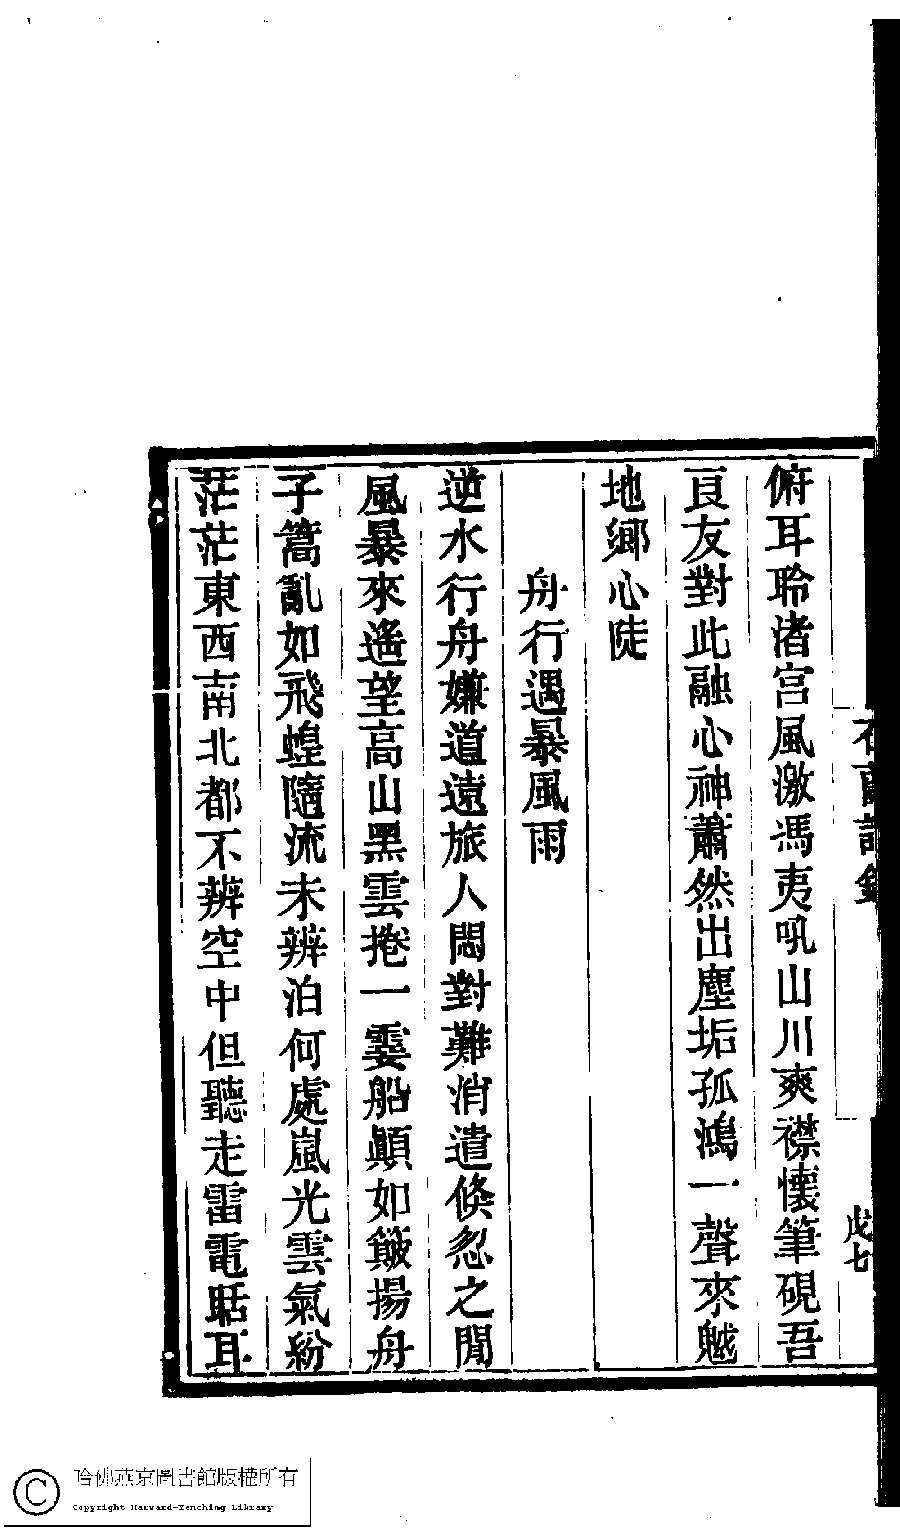 俯耳聆渚宮風激馮夷吼山川爽襟懷筆硯吾
良友對此融心神蕭然出塵垢孤鴻一聲來魆
地鄉心陡
舟行遇暴風雨
逆水行舟嫌道遠旅人悶對難消遣倏忽之閒
風暴來遙望高山黑雲捲一霎船顚如簸揚舟
子篙亂如飛蝗隨流未辨泊何處嵐光雲氣紛
茫茫東西南北都不辨空中但聽走雷電聒耳
戊七
哈佛燕京圖書館版權所有
Copyright Harvard-Yenching Library